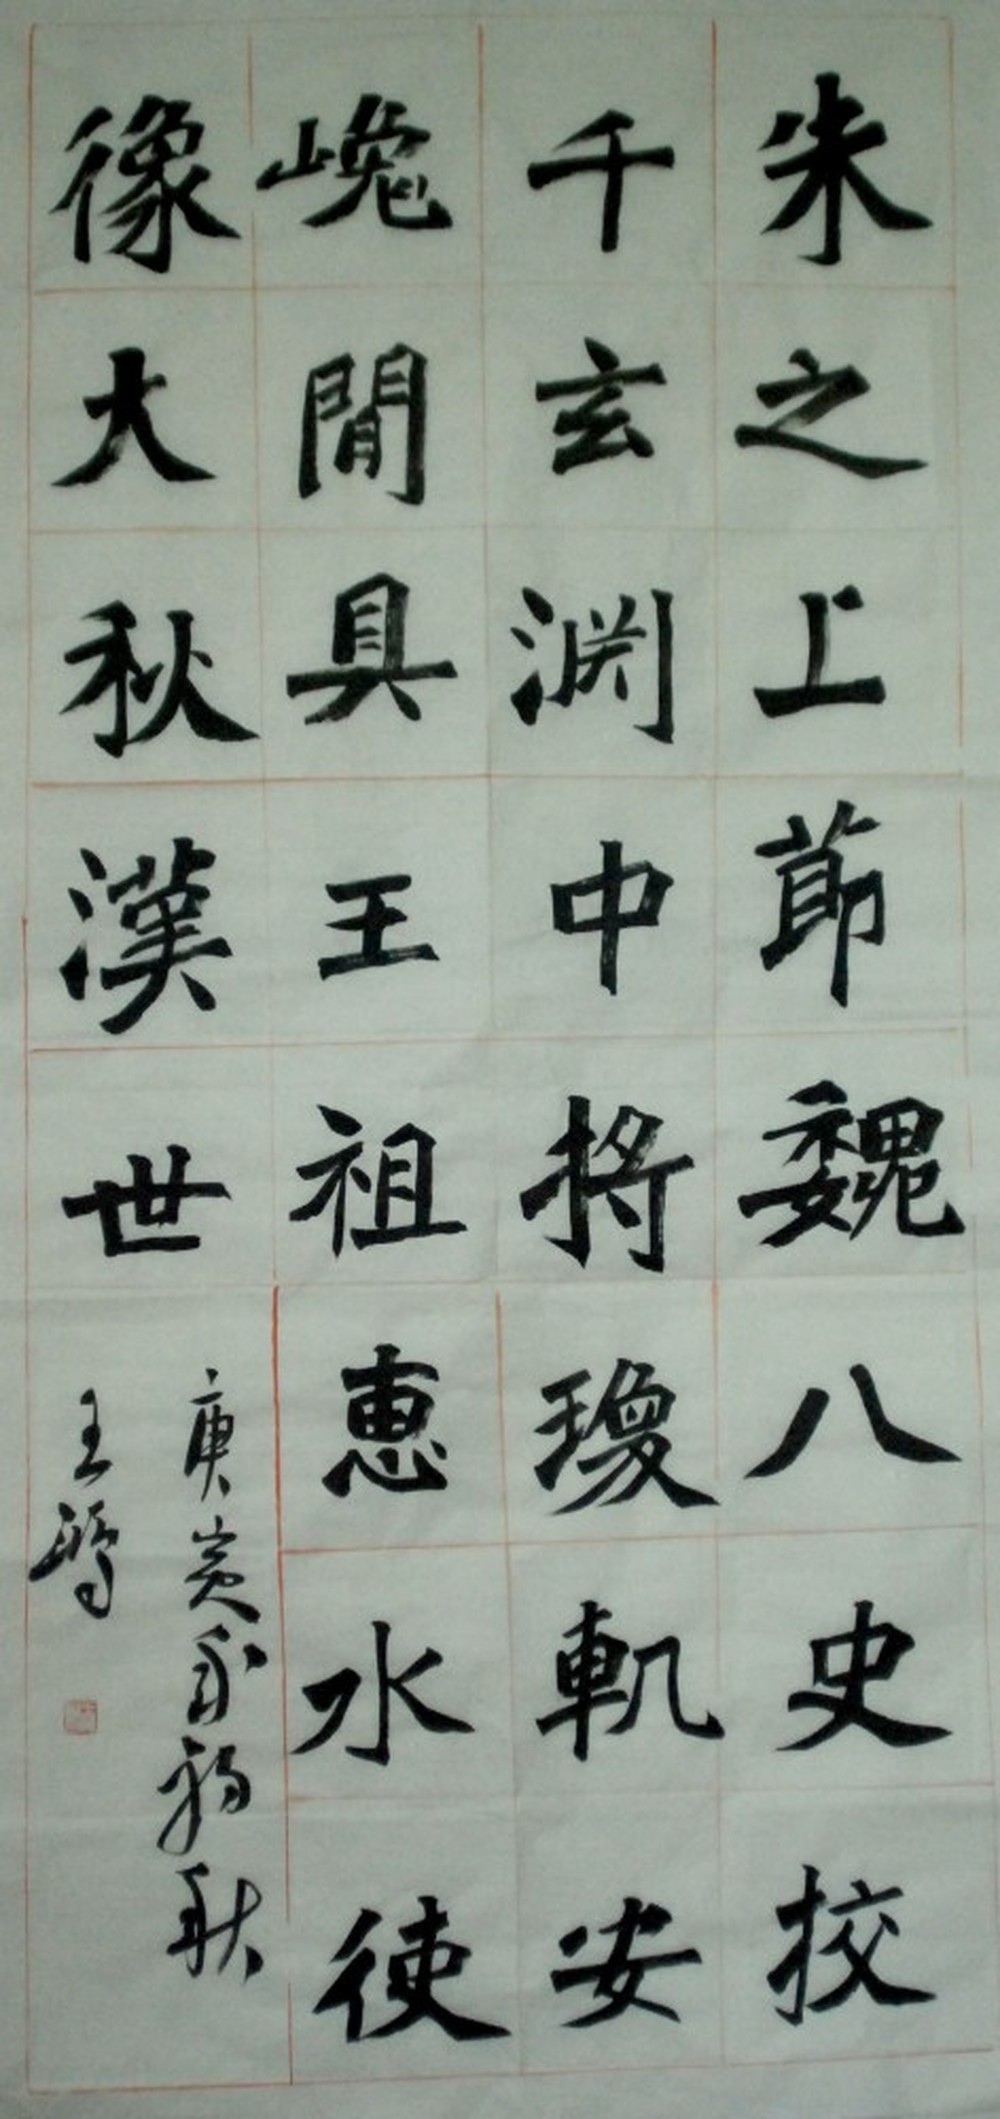 朱之上節魏八史挍
千玄渊中将瓊軌安
巉閒具王祖惠水使
像大秋漢世
庚寅年初秋
王鸿